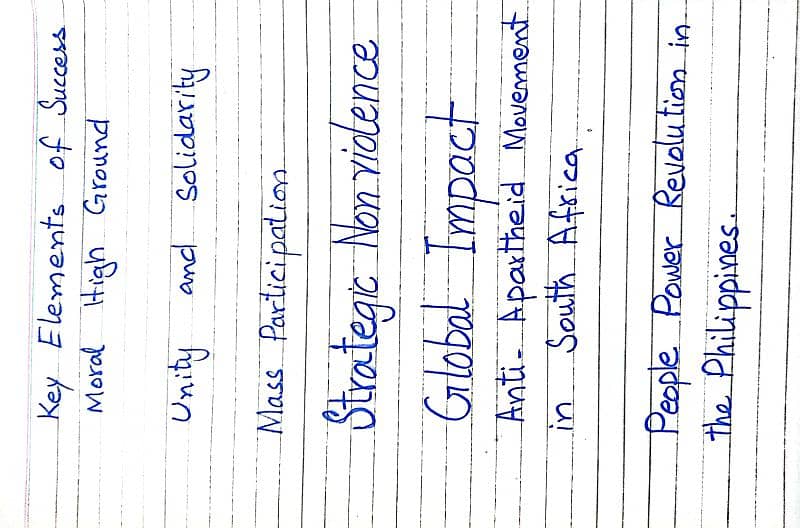 Key Elements of Success
Moral High Ground
Unity and Solidarity
Mass Participation
Strategic Nonviolence
Global Impact
Anti-Apartheid Movement
in South Africa.
People Power Revolution in
the Philippines.